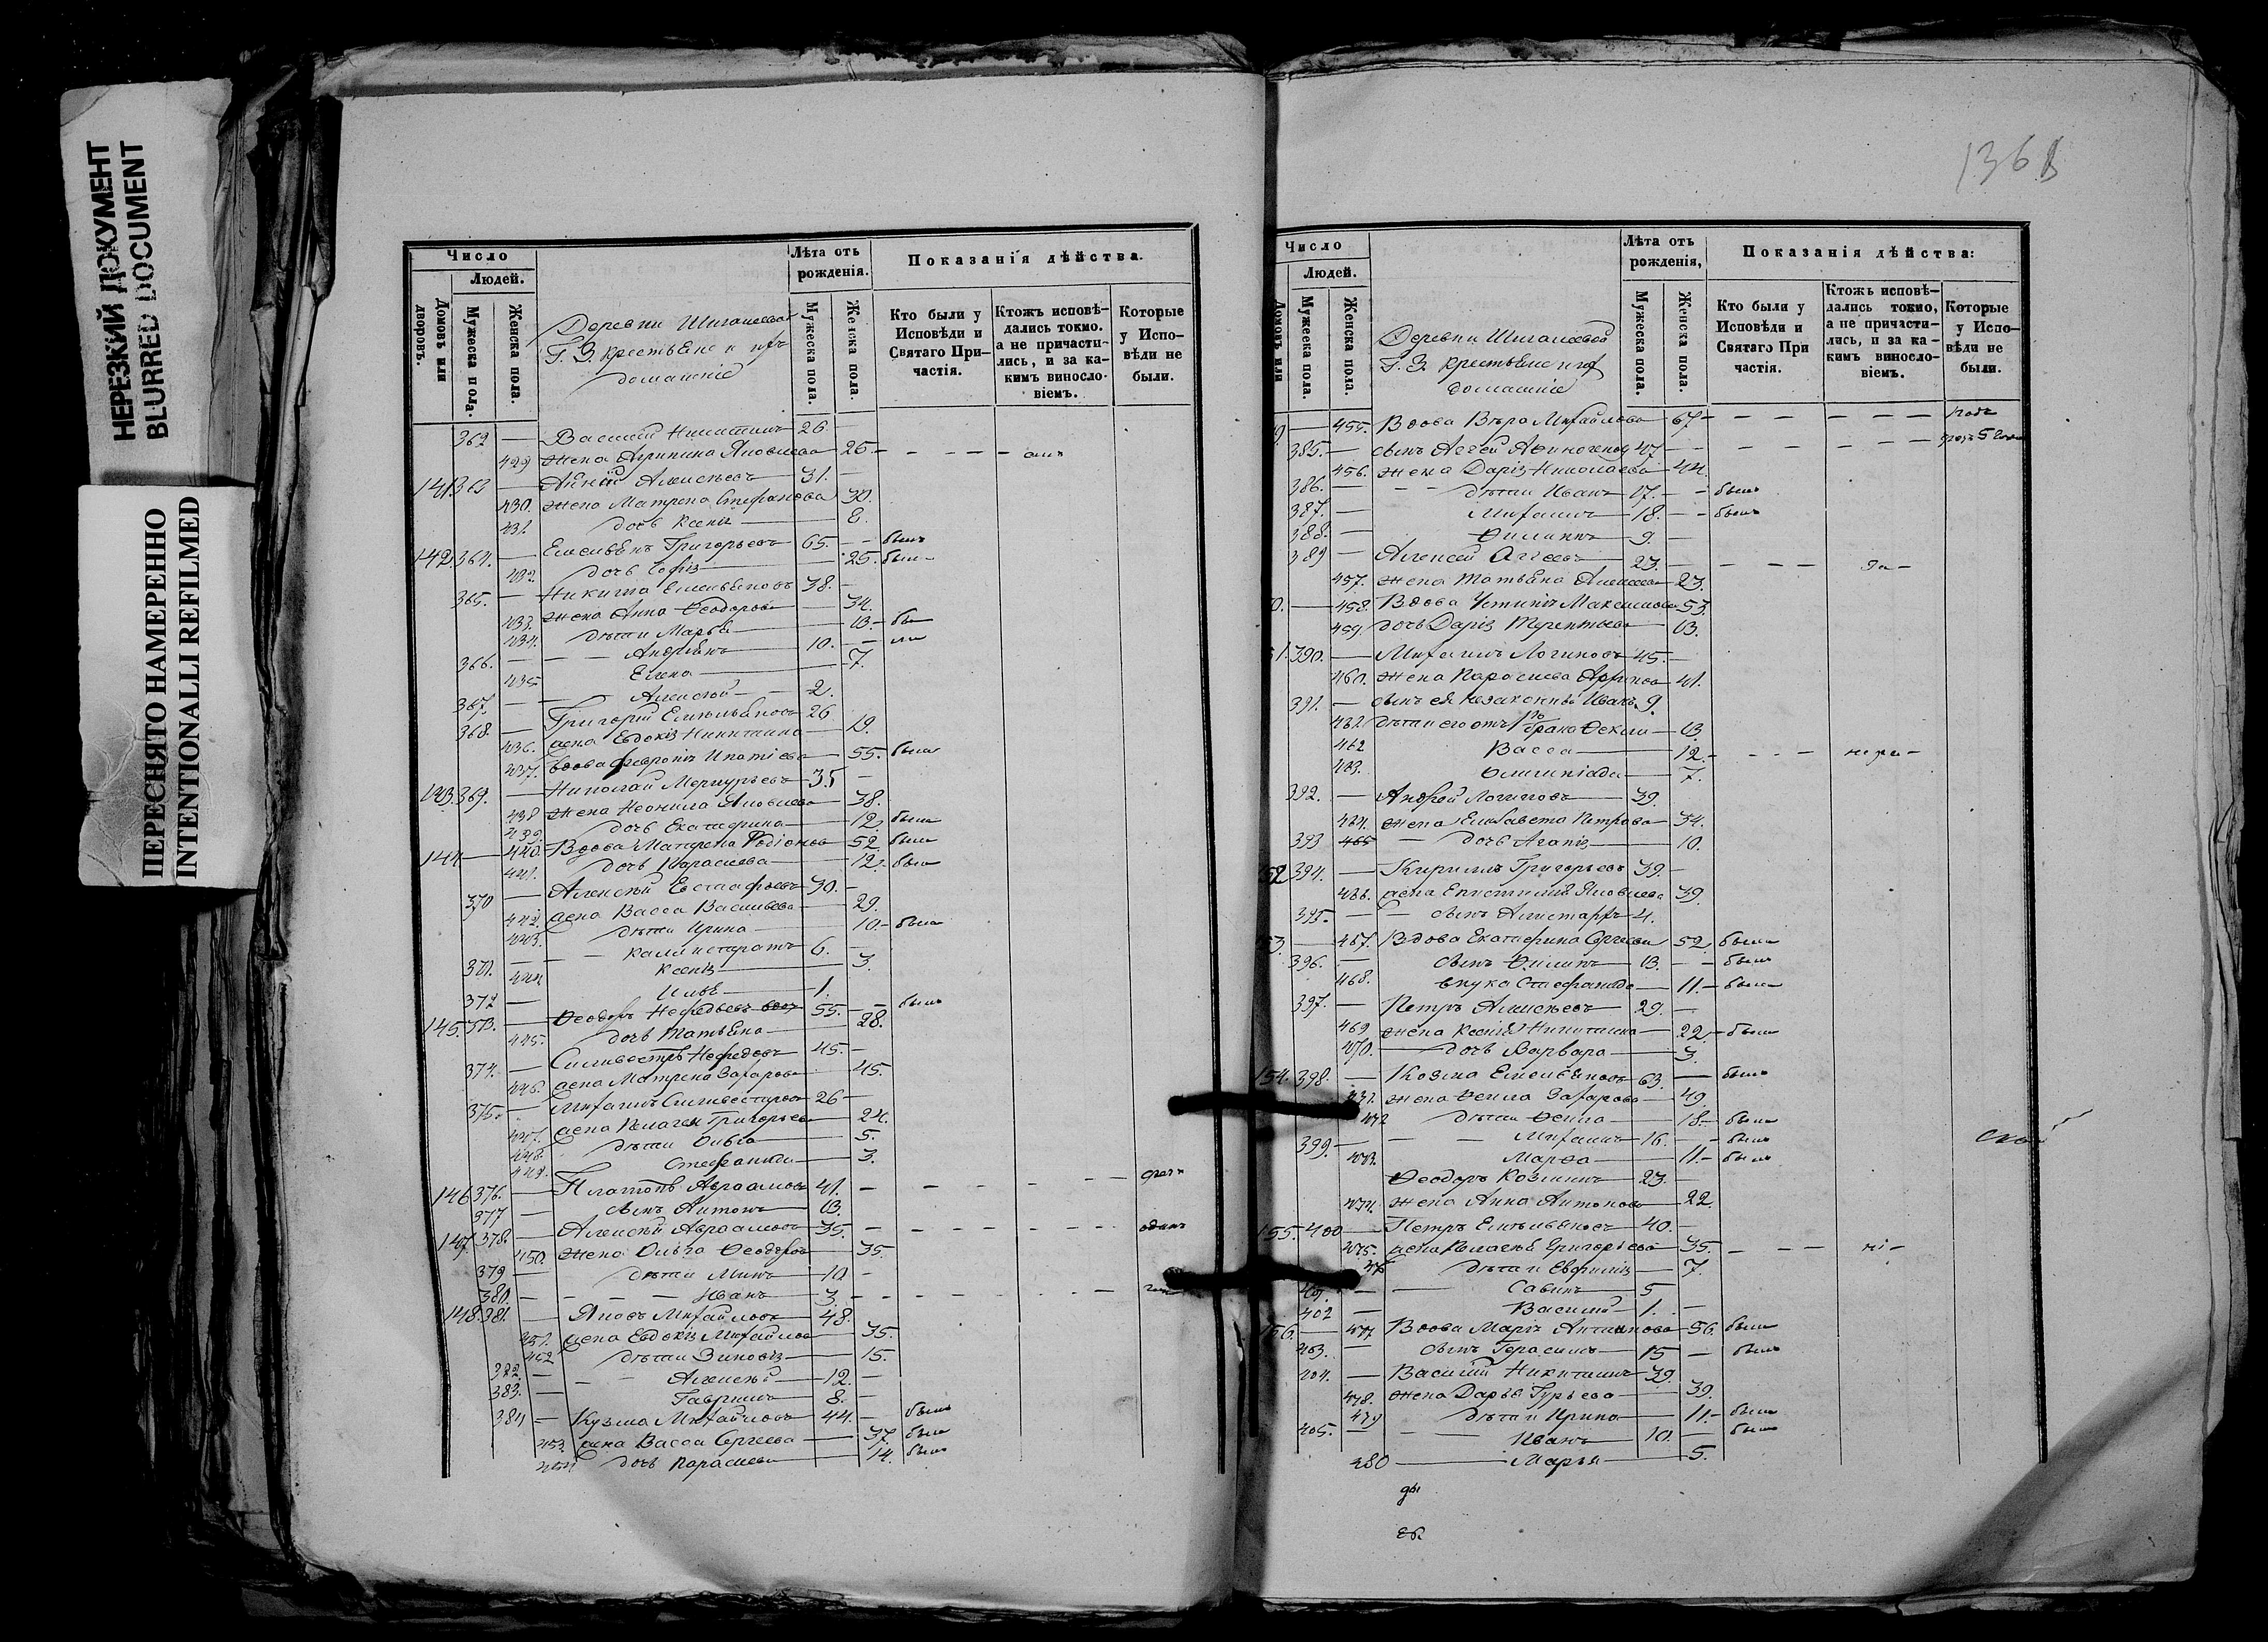 НЕРЕЗКИЙ ДОКУМЕНТ
BLURRED DOCUMENT
ПЕРЕСНЯТО НАМЕРЕННО
INTENTIONALLI REFILMED
Число
Людей.
Домовъ или дворовъ.
Мужеска пола.
Женска пола.
Деревни Шигалеевой
Г. З. крестьяне и ихъ
домашніе
Лѣта отъ рожденія.
Мужеска пола.
Женска пола.
Показанія дѣйства.
Кто были у Исповѣди и Святаго При-частія.
Ктожъ исповѣ-дались токмо. а не причасти-лись, и за ка-кимъ винословіемъ.
Которые у Испо-вѣди не были.
362 — Василій Никитинъ 26
429 жена Агрипина Яковлева 25
141 363 — Алексѣевъ 31.
430. жена Матрена Стефанова 30.
431. дочь Ксенія 8.
142 364. — Емельянъ Григорьевъ 65. — былъ
432. дочь Софія 25. была
365. — Никита Емельяновъ 38.
433. жена Анна Ѳеодорова 34.
434. дѣти Марья 13 —
366. — Андріянъ 10.
435 Елена 7.
367. — Алексѣй 2.
368. — Григорій Емельяновъ 26
436. жена Евдокія Никитина 19.
437. вдова Февронія Ипатіева 55. была
143. 369. — Николай Меркурьевъ 35
438 жена Неонила Яковлева 38.
439. дочь Екатерина 12. была
144 — 440. Вдова Матрена Родіонова 52 была
441. дочь Парасковья 12. была
370 — Алексѣй Евстафьевъ 30.
442. жена Васса Васильева 29.
443. дѣти Ирина 10. была
371. — Каллистратъ 6.
444 Ксенія 3.
372 — Илья 1.
145. 373. — Ѳеодоръ Нефедьевъ 55. — былъ
445. дочь Татьяна 28.
374. — Силивестръ Нефедовъ 45.
446. жена Матрена Захарова 45.
375. — Михаилъ Силивестровъ 26
447. жена Пелагея Григорьева 24.
448. дѣти Ольга 5.
449. Стефанида 3.
146 376. — Платонъ Авраамовъ 41.
377 — сынъ Антонъ 13.
147 378. — Алексѣй Авраамовъ 35. одинъ
450. жена Ольга Ѳеодорова 35.
379 — дѣти 10
380. — Иванъ 3.
148. 381. — Яковъ Михайловъ 48.
451. жена Евдокія Михайлова 35.
452 дѣти Зиновія 15.
382. — Алексѣй 12.
383. — Гавріилъ 8.
384 — Кузьма Михайловъ 44. былъ
453. жена Васса Сергѣева 37. была
454 дочь Парасковья 14. была
1368
Число
Людей.
Домовъ или
Мужеска пола.
Женска пола.
Деревни Шигалеевой
Г. З. крестьяне и ихъ
домашніе
Лѣта отъ рожденія,
Мужеска пола.
Женска пола.
Показанія дѣйства:
Кто были у Исповѣди и Святаго При частія.
Ктожъ исповѣ-дались токмо, а не причасти-лись, и за ка-кимъ винословіемъ.
Которые у Испо-вѣди не были.
— 455. Вдова Вѣра Михайлова 67
385. — сынъ Аггей 47
456. жена Дарія Николаева 44
386. — дѣти Иванъ 17. былъ
387. — Михаилъ 18. былъ
388. — Филиппъ 9.
389 — Алексѣй Аггеевъ 23.
457. жена Татьяна Алексѣева 23.
— 458. Вдова Устинія Максимова 53.
459. дочь Дарія Терентьева 13.
390. — Михаилъ Логиновъ 45.
460. жена Парасковья 41.
391. — сынъ ея незаконный Иванъ 9.
461. дѣти его отъ 1го брака Ѳекла 13
462 Васса 12.
463. Олимпіада 7.
392. — Андрей Логиновъ 39.
464. жена Елисавета Петрова 34.
393 465 — дочь Агапія 10.
152 394. — Кириллъ Григорьевъ 39.
466. жена Епистимія Яковлева 39.
395. — сынъ Аристархъ 4.
— 467. Вдова Екатерина Сергѣева 52 была
396. — сынъ Филиппъ 13. былъ
468. внука Стефанида 11. была
397. — Петръ Алексѣевъ 29.
469 жена Ксенія Никитина 22. была
470. дочь Варвара 3.
154. 398. — Козма Емельяновъ 63. былъ
471. жена Ѳекла Захарова 49.
472 дѣти Ѳекла 18. была
399. — Михаилъ 16. былъ
473. Марѳа 11. была
Ѳеодоръ Козминъ 23.
474. жена Анна Антонова 22.
155. 400 — Петръ Емельяновъ 40.
475. жена Пелагея Григорьева 35.
476 дѣти Евфимія 7.
401. — Савинъ 5
402 — Василій 1.
156. — 477 Вдова Марія Антипова 56. была
403. — сынъ Герасимъ 15 былъ
404. — Василій Никитинъ 39.
478. жена Дарья Гурьева 39.
479 дѣти Ирина 11. была
405. — Иванъ 10. былъ
480 Марья 5.